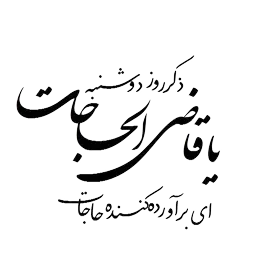 ذکر روز دوشنبه
یا قاضی الحاجات
ای برآورده کننده حاجات